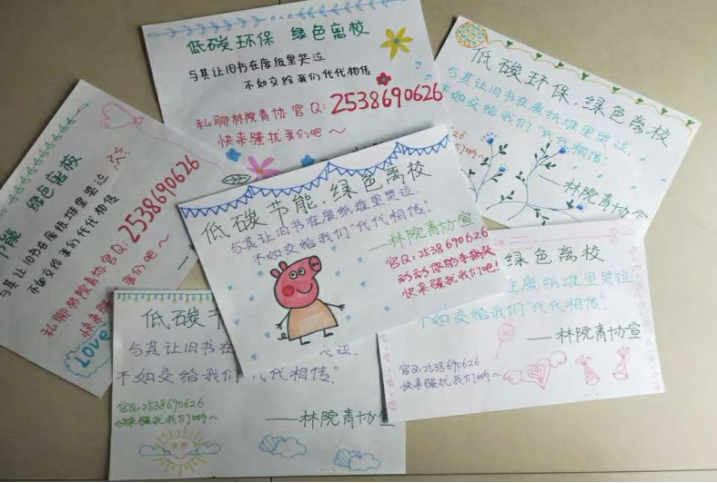 低碳环保 绿色离校
与其让旧书在废纸里哭泣
不如交给我们代代相传
私聊林院青协 官Q:2538690626
快来骚扰我们吧~
低碳环保.绿色离校
与其让旧书在废纸堆里哭泣.
不如交给我们"代代相传.
690626
们吧~
——林院青协宣
能 绿色离校
与其让旧书在废纸堆里哭泣
不如交给我们代代相传
私聊林院青协官Q:2538690626
快来骚
们吧~
Love
低碳节能.绿色离校
与其让旧书在废纸堆里哭泣.
不如交给我们"代代相传".
——林院青协宣
官Q:2538690626
动动你的手指头
快来骚扰我们吧!
绿色离校
在废纸堆里哭泣
不如交给我们"代代相传"
——林院青协宣
官Q:2538690626
快来骚扰我们哟~
低碳节
与其让旧书在
泣.
不如交给我们"代代相传"
官Q:2538690626
快来骚扰我们哟~
——林院青协宣